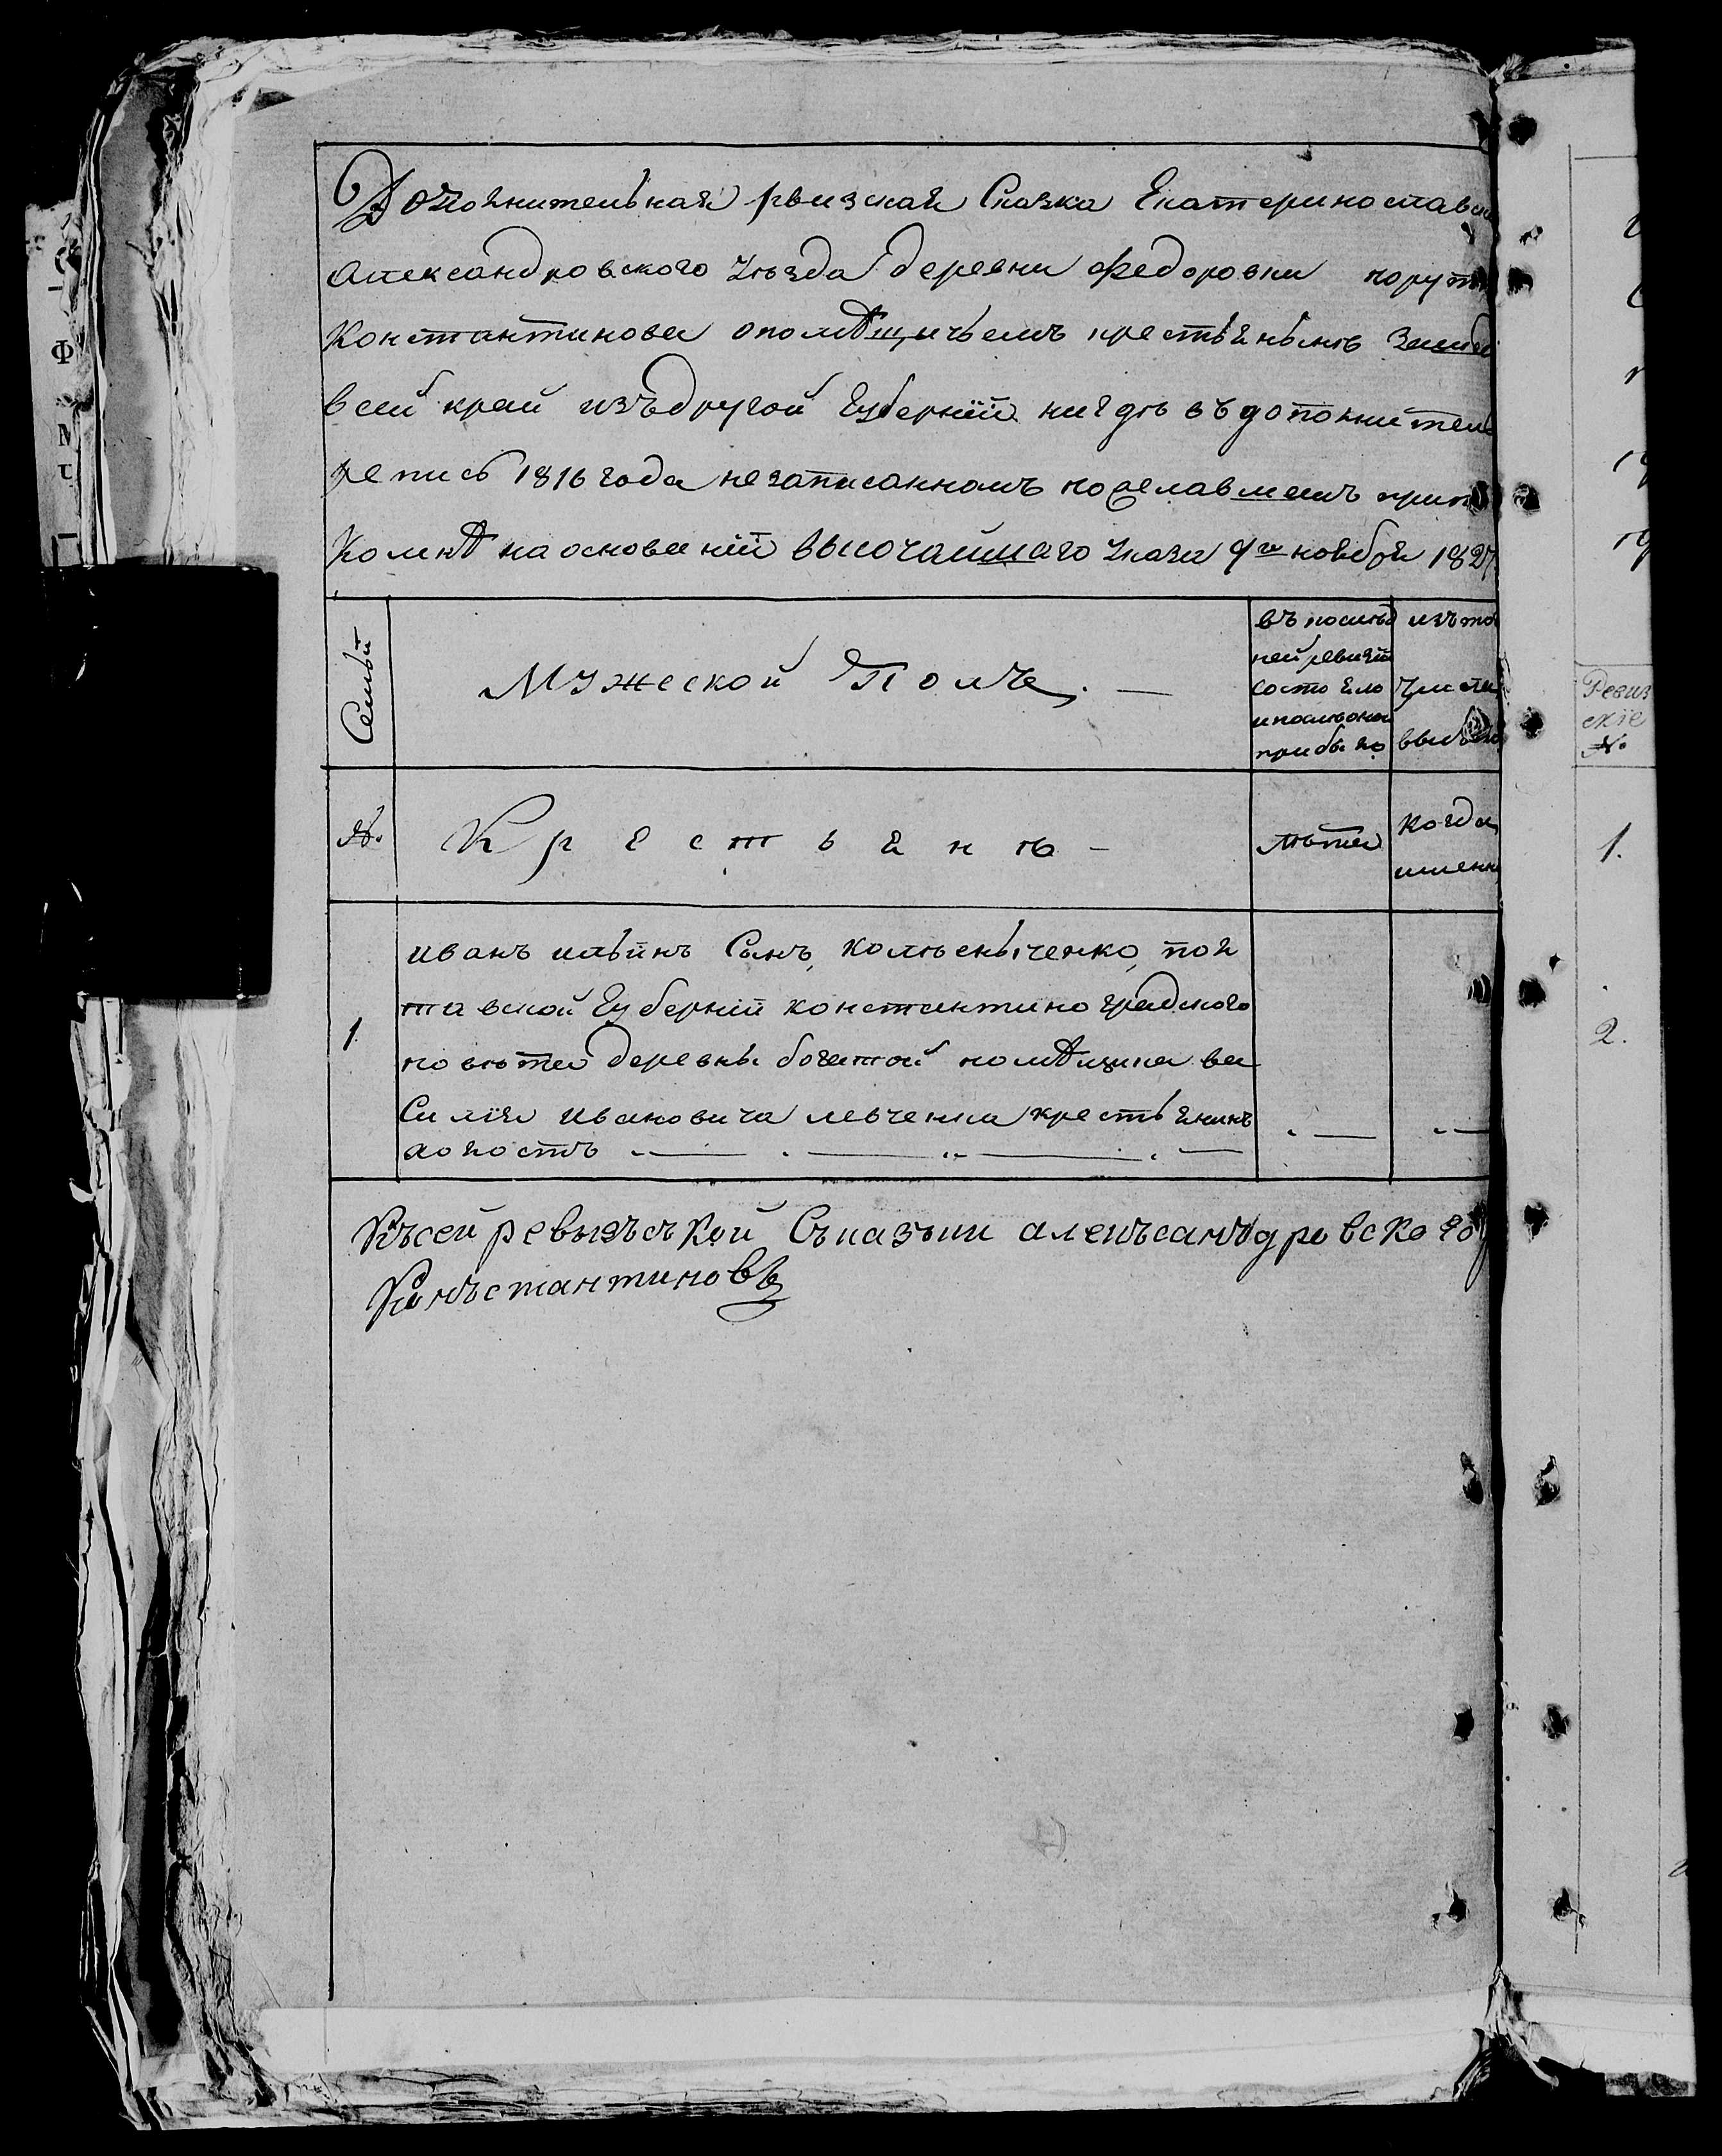 Дополнительная рвизская Сказка Екатеринослав
Александровского Уезда деревни Федоровки
Константинова опомѣщичьемъ крестьянынѣ
всей край изъдругой Губернїй нигдѣ въдополнител
репись 1816 года незаписанномъ
наоснованїй высочайшаго Указа 9го ноября 1827
Семьи
Мужеской Полъ. —
въпослѣд
ней ревизїи
состояло
ипослѣоной
прибыло
изътого
Числа
выбыло
№.
Крестьянѣ —
лѣта
когда
именно
1
иванъ ильинъ Сынъ, колѣсныченко, пол
тавской Губернїй константиноградского
повѣта деревны богатой помѣщика ва
Силїя ивановича левченка крестьянинъ
холостъ
Късей ревызъской Съказъки алекъсанъдровского
Конъстантиновъ
Ревиз
скїе
№.
1.
2.